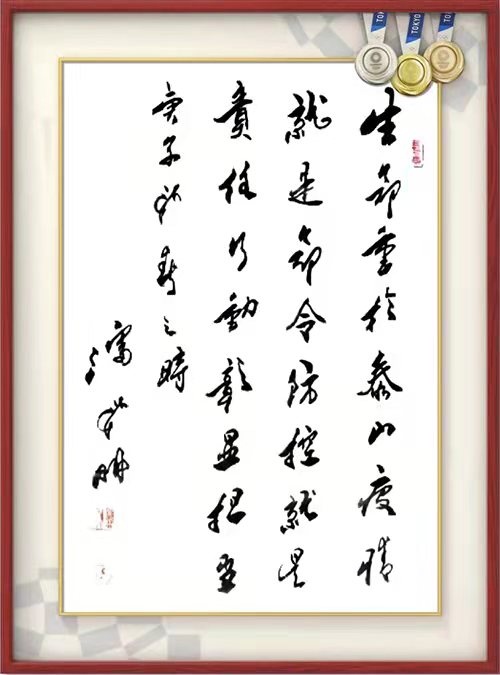 TOKYO
TOKYO
生命重於泰山疫情
就是命令防控就是
責任行動彰显担当
庚子初春之時